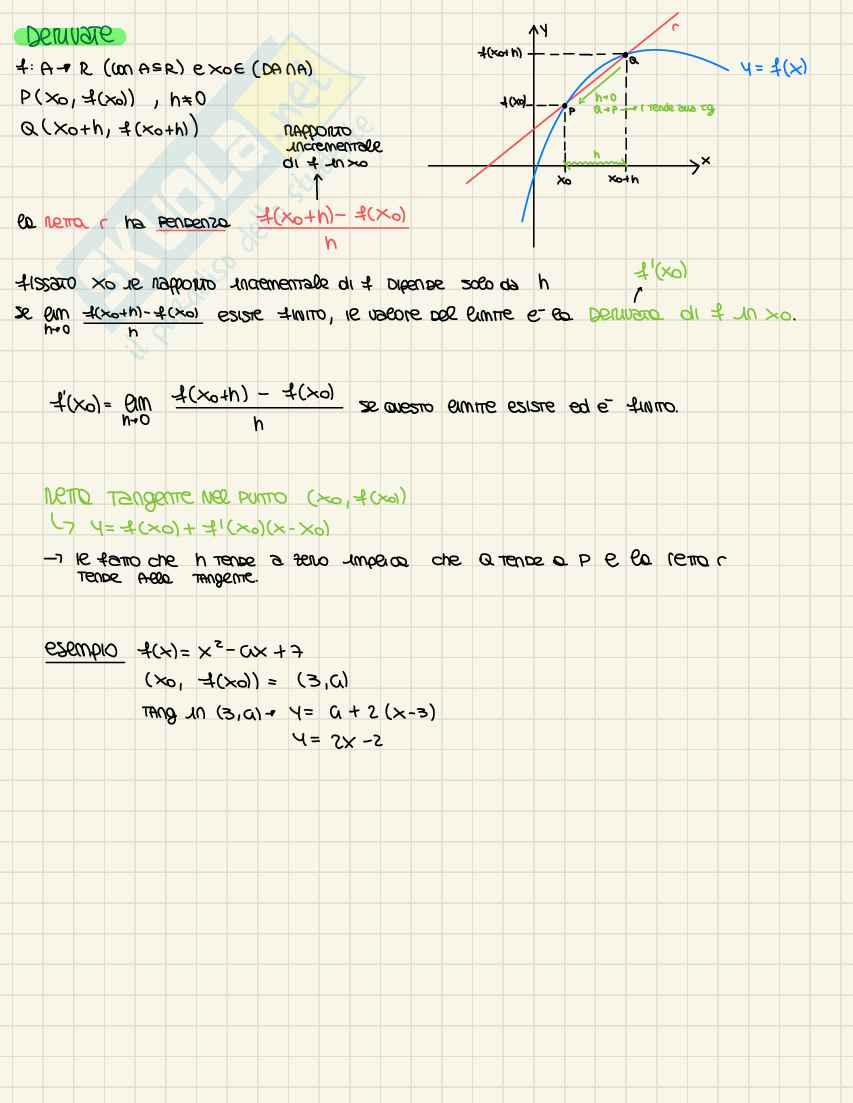 DERIVATE
f: A → R (con A⊆R) e x0 ∈ (DA ∩ A)
P(x0, f(x0)) , h≠0
Q(x0+h, f(x0+h))
RAPPORTO
incrementale
di f in x0
la retta r ha pendenza f(x0+h) - f(x0) / h
y
r
f(x0+h)
Q
y = f(x)
f(x0)
P
h→0
Q → P → r tende alla tg
h
x
x0
x0+h
fissato x0 il rapporto incrementale di f dipende solo da h
f'(x0)
se lim h→0 f(x0+h) - f(x0) / h esiste finito, il valore del limite è la derivata di f in x0.
f'(x0) = lim h→0 f(x0+h) - f(x0) / h se questo limite esiste ed è finito.
retta tangente nel punto (x0, f(x0))
↳ y = f(x0) + f'(x0)(x-x0)
→ il fatto che h tende a zero implica che Q tende a P e la retta r
tende alla tangente.
esempio f(x) = x² - ax + 7
(x0, f(x0)) = (3, a)
tang in (3, a) → y = a + 2(x-3)
y = 2x - 2
SKUOLA.net
il paradiso dello studente